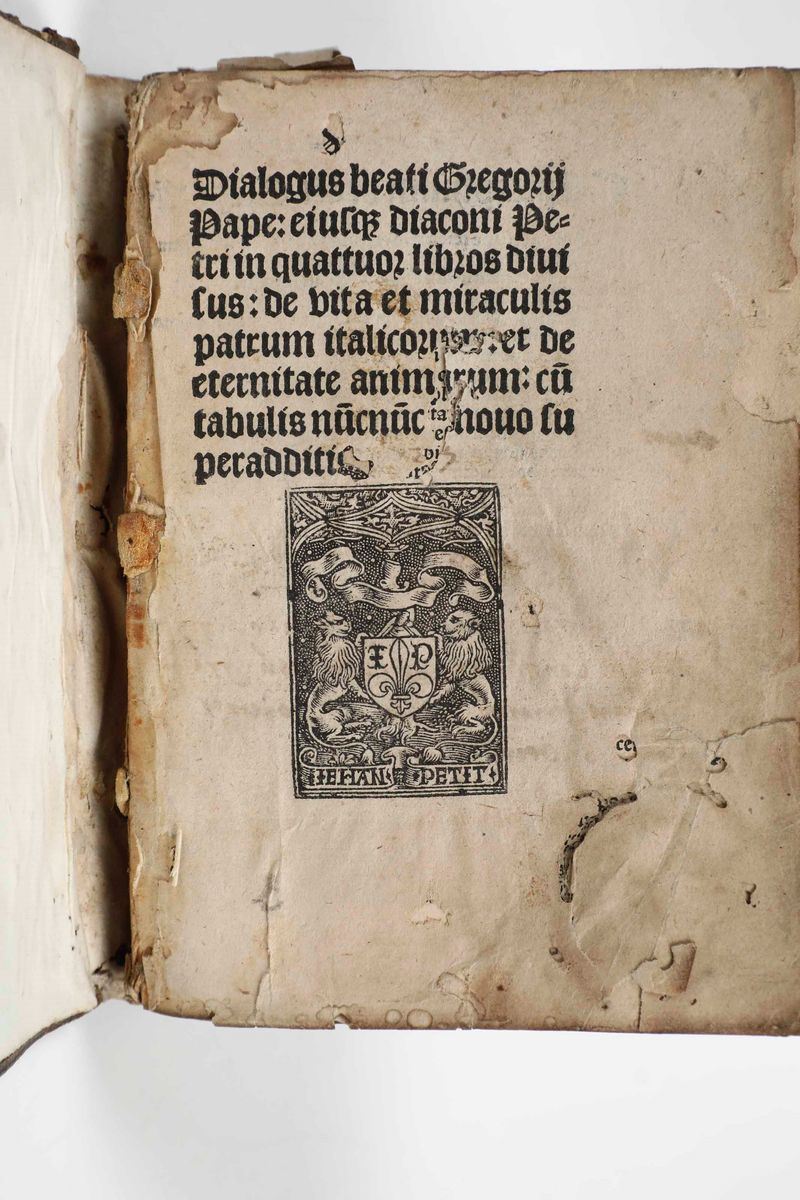 Dialogus beati Gregorij
Pape: eiusqꝫ diaconi Pe-
tri in quattuor libros diui
sus: de vita et miraculis
patrum italicorum: et de
eternitate animarum: cū
tabulis nūcnūc nouo su
peradditis
ta
I P
IEHAN PETIT
ce